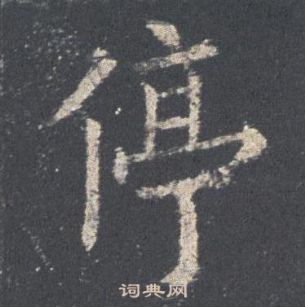 停
词典网